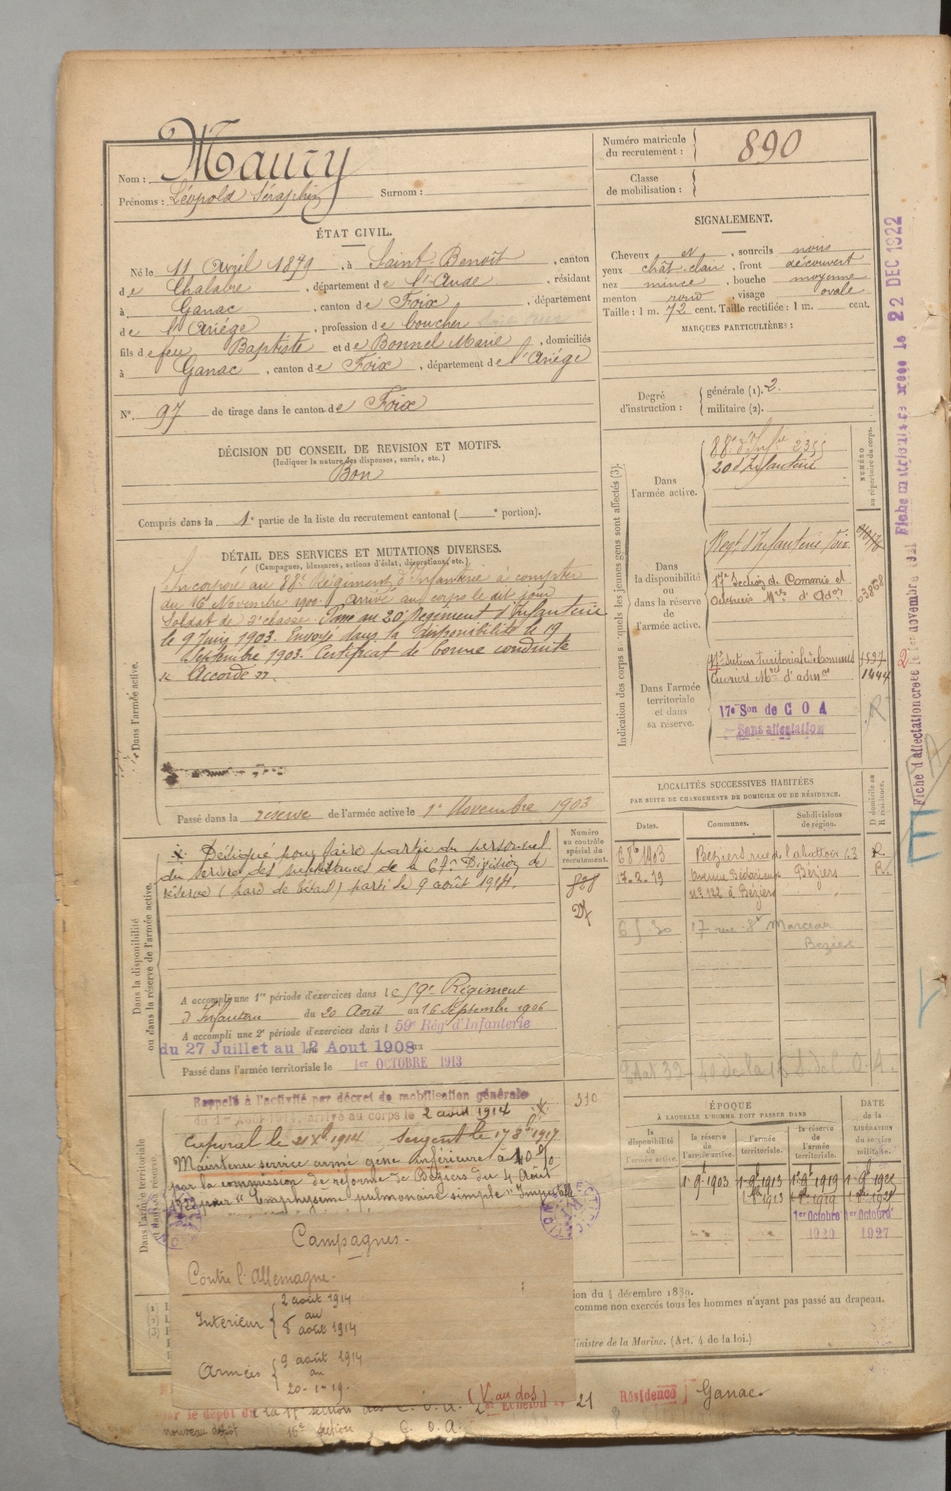 Nom : Maury
Prénoms : Léopold Séraphin Surnom :
Numéro matricule du recrutement : 890
Classe de mobilisation :
ÉTAT CIVIL.
Né le 11 Avril 1879, à Saint-Benoît, canton
de Chalabre, département de l'Aude, résidant
à Ganac, canton de Foix, département
de l'Ariège, profession de boucher
fils de feu Baptiste et de Bonnel Marie, domiciliés
à Ganac, canton de Foix, département de l'Ariège
N° 97 de tirage dans le canton de Foix
SIGNALEMENT.
Cheveux et, sourcils noirs
yeux chât. clair, front découvert
nez mince, bouche moyenne
menton rond, visage ovale
Taille : 1 m. 72 cent. Taille rectifiée : 1 m. cent.
MARQUES PARTICULIÈRES :
Degré d'instruction : générale (1). 2.
militaire (2).
DÉCISION DU CONSEIL DE REVISION ET MOTIFS.
(Indiquer la nature des dispenses, sursis, etc.)
Bon
Compris dans la 1e partie de la liste du recrutement cantonal ( e portion).
DÉTAIL DES SERVICES ET MUTATIONS DIVERSES.
(Campagnes, blessures, actions d'éclat, décorations, etc.)
Dans l'armée active.
Incorporé au 88e Régiment d'Infanterie à compter
du 16 Novembre 1900. Arrivé au corps le dit jour
Soldat de 2e classe. Passé au 20e Régiment d'Infanterie
le 9 Juin 1903. Envoyé dans la disponibilité le 19
Septembre 1903. Certificat de bonne conduite
" Accordé ".
Passé dans la réserve de l'armée active le 1er Novembre 1903
Indication des corps auxquels les jeunes gens sont affectés (3).
NUMÉRO au répertoire du corps.
Dans l'armée active.
88e d'Infie 2355
20 d'Infanterie
Dans la disponibilité ou dans la réserve de l'armée active.
Regt d'Infanterie Foix
17e Section de Commis et
Ouvriers Mres d'Adon
Dans l'armée territoriale et dans sa réserve.
17e Section territoriale de Commis
Ouvriers Mres d'admon 1444
17e Son de C O A
Sans affectation
Dans la disponibilité ou dans la réserve de l'armée active.
Numéro au contrôle spécial du recrutement.
Délégué pour faire partie du personnel
du service des subsistances de la 67e Division de
réserve (parc de bétail) parti le 9 août 1914.
A accompli une 1re période d'exercices dans le 59e Régiment
d'Infanterie du 20 Août au 16 Septembre 1906
A accompli une 2e période d'exercices dans le 59e Rég d'Infanterie
du 27 Juillet au 12 Aout 1908
Passé dans l'armée territoriale le 1er OCTOBRE 1913
LOCALITÉS SUCCESSIVES HABITÉES
PAR SUITE DE CHANGEMENTS DE DOMICILE OU DE RÉSIDENCE.
Dates. Communes. Subdivisions de région. D domicile ou R résidence.
1903 Béziers rue de l'abattoir 63 R.
17-2-19 avenue Bédarieux Béziers R.
n° 122 à Béziers
6 5 30 17 rue Marceau
Béziers
Dans l'armée territoriale et dans sa réserve.
Rappelé à l'activité par décret de mobilisation générale
arrivé au corps le 2 août 1914 310
Caporal le 21 Xbre 1914 Sergent le 17 8bre 1917
Maintenu service armé gêne inférieure à 10 %
par la commission de réforme de Béziers du 4 Août
pour "Emphysème pulmonaire simple"
ÉPOQUE
À LAQUELLE L'HOMME DOIT PASSER DANS
la disponibilité de l'armée active. la réserve de l'armée active. l'armée territoriale. la réserve de l'armée territoriale. DATE de la LIBÉRATION du service militaire.
1er Octobre 1920 1er Octobre 1927
Campagnes.
Contre l'Allemagne.
Intérieur 2 août 1914
au
8 août 1914
Armées 9 août 1914
au
20-1-19.
ion du 4 décembre 1889.
comme non exercés tous les hommes n'ayant pas passé au drapeau.
Ministre de la Marine. (Art. 4 de la loi.)
(V. au dos)
21 Résidence Ganac
nouveau dépôt 16e section C. O. A.
Fiche matricule créée le 22 DEC 1922